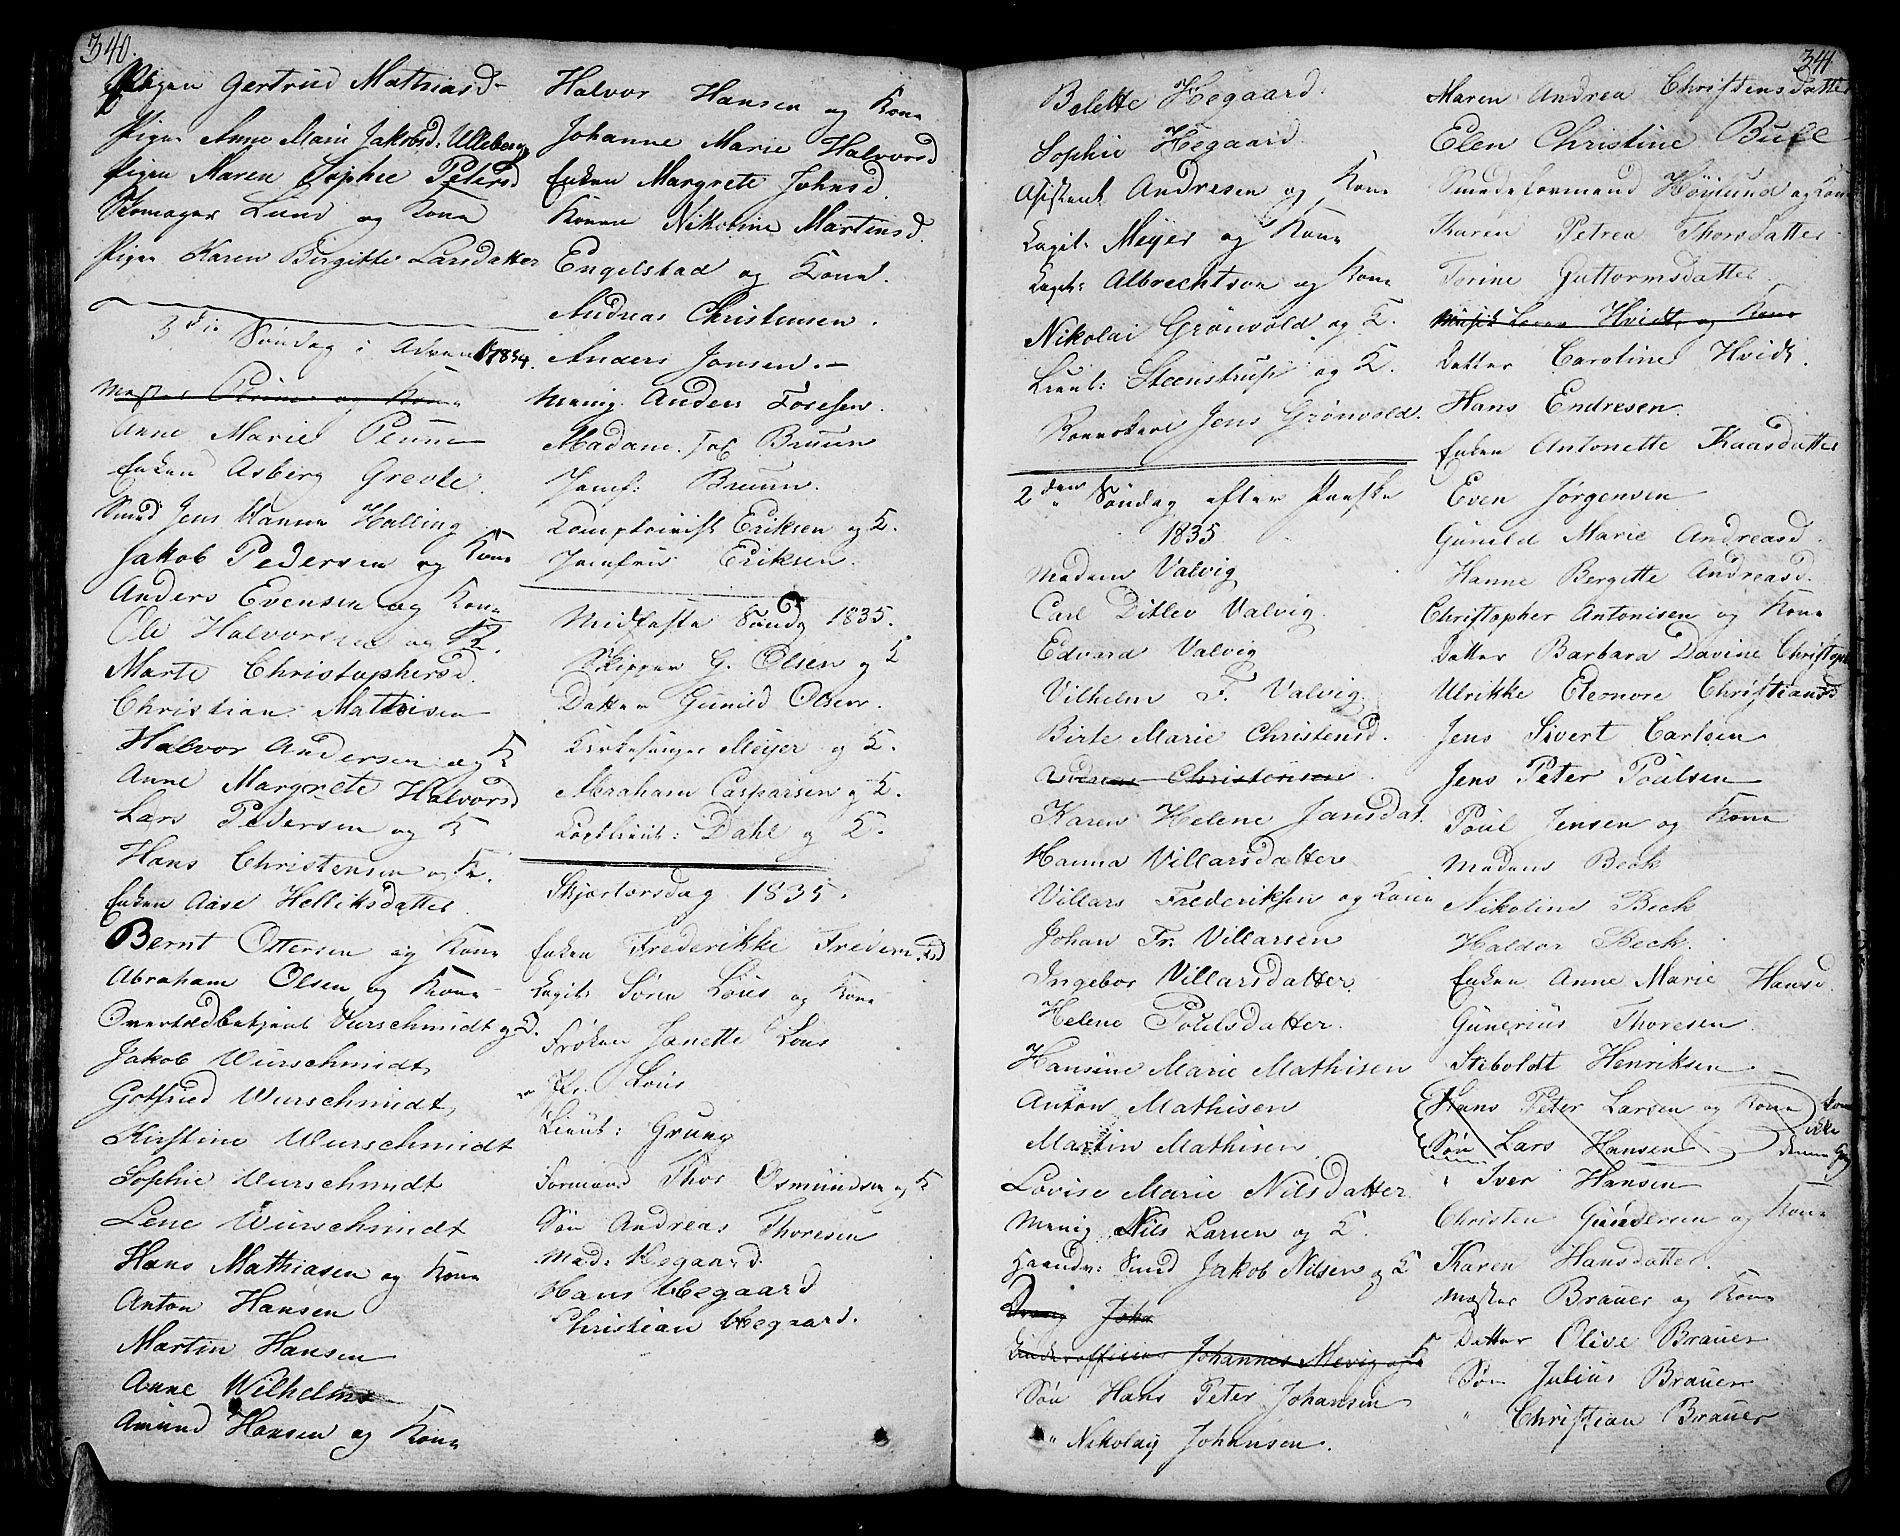 340.
Pigen Gertrud Mathiasd
Pigen Anne Marie Jakobsd. Ulleberg
Pigen Maren Sophie Petersd
Skomager Lund og Kone
Pigen Karen Birgitte Larsdatter
3die Søndag i Advent 1834.
Mester og Kone
Anne Marie
Enken Asberg Grevle.
Smed Jens Hanne Halling
Jakob Pedersen og Kone
Anders Evensen og Kone
Ole Halvorsen og K.
Marte Christophersd.
Christian Mathisen
Halvor Andersen og K
Anne Margrete Halvorsd
Lars Pedersen og K
Hans Christensen og K.
Enken Aase Helliksdatter
Bernt Ottersen og Kone
Abraham Olsen og Kone
Overtoldbetjent Wurschmidt og D.
Jakob Wurschmidt
Gotfried Wurschmidt
Kirstine Wurschmidt
Sophie Wurschmidt
Lene Wurschmidt
Hans Mathiasen og Kone
Anton Hansen
Martin Hansen
Anne Wilhelms
Amund Hansen og Kone
Halvor Hansen og Kone
Johanne Marie Halvorsd
Enken Margrete Johnsd.
Konen Nikoline Martinsd.
Engelstad og Kone.
Andreas Christensen.
Anders Jonsen.
Menig. Anders Foresen.
Madame Bruun
Jomf: Bruun.
Comptoirist Eriksen og K.
Jomfru Eriksen.
Midfaste Søndg 1835.
Skipper G. Olsen og K
Datter Gunild Olsen.
Kirkesanger Meyer og K.
Abraham Casparsen og K.
Captlieut: Dahl og K.
Skjærtorsdag 1835.
Enken Frederikke
Capit: Søren Lous og Kone
Frøken Janette Lous
Fr. Lous
Lieut: Grung
Formand Thor Osmundsen og K
Søn Andreas Thoresen
Mad: Hegaard.
Hans Hegaard
Christian Hegaard.
341.
Bolette Hegaard.
Sophie Hegaard.
Assistent Andresen og Kone
Capit: Meyer og Kone
Capit: Albrechtson og Kone
Nikolai Grønvold og K.
Lieut: Steenstrup og K.
Jens Grønvold.
2den Søndag efter Paaske
1835
Madam Valvig
Carl Ditlev Valvig.
Edvard Valvig
Vilhelm F. Valvig
Birte Marie Christensd.
Andreas Christensen
Karen Helene Jansdat.
Hanna Villarsdatter
Villars Frederiksen og Kone
Johan Fr: Villarsen
Ingebor Villarsdatter
Helene Poulsdatter.
Hansine Marie Mathisen
Anton Mathisen
Martin Mathisen
Lovise Marie Nilsdatter
Menig Nils Larsen og K.
Haandv: Smed Jakob Nilsen og K
Dreng
Underofficer Johannes Mevig og K
Søn Hans Peter Johansen
" Nikolay Johansen.
Maren Andrea Christensdatter
Elen Christine Bull
Smedeformand Höylund og Kone
Karen Petrea Thorsdatter
Torine Guttormsdatter
Musik Hvidt og Kone
Datter Caroline Hvidt.
Hans Endresen.
Enken Antonette Kaasdatter
Even Jørgensen
Gunild Marie Andreasd.
Hanne Bergitte Andreasd.
Christopher Antonisen og Kone
Datter Barbara Davine Christoph
Ulrikke Eleonore Christiansd
Jens Sivert Carlsen
Jens Peter Poulsen
Poul Jensen og Kone
Madame Beck
Nikoline Beck
Haldor Beck.
Enken Anne Marie Hansd.
Gunerius Thoresen.
Stiboldt Henriksen
Hans Peter Larsen og Kone
Søn Lars Hansen
kom ikke denne Gang
" Iver Hansen
Christen Gundersen og Kone
Karen Hansdatter.
Mester Brauer og Kone
Datter Olive Brauer
Søn Julius Brauer
" Christian Brauer